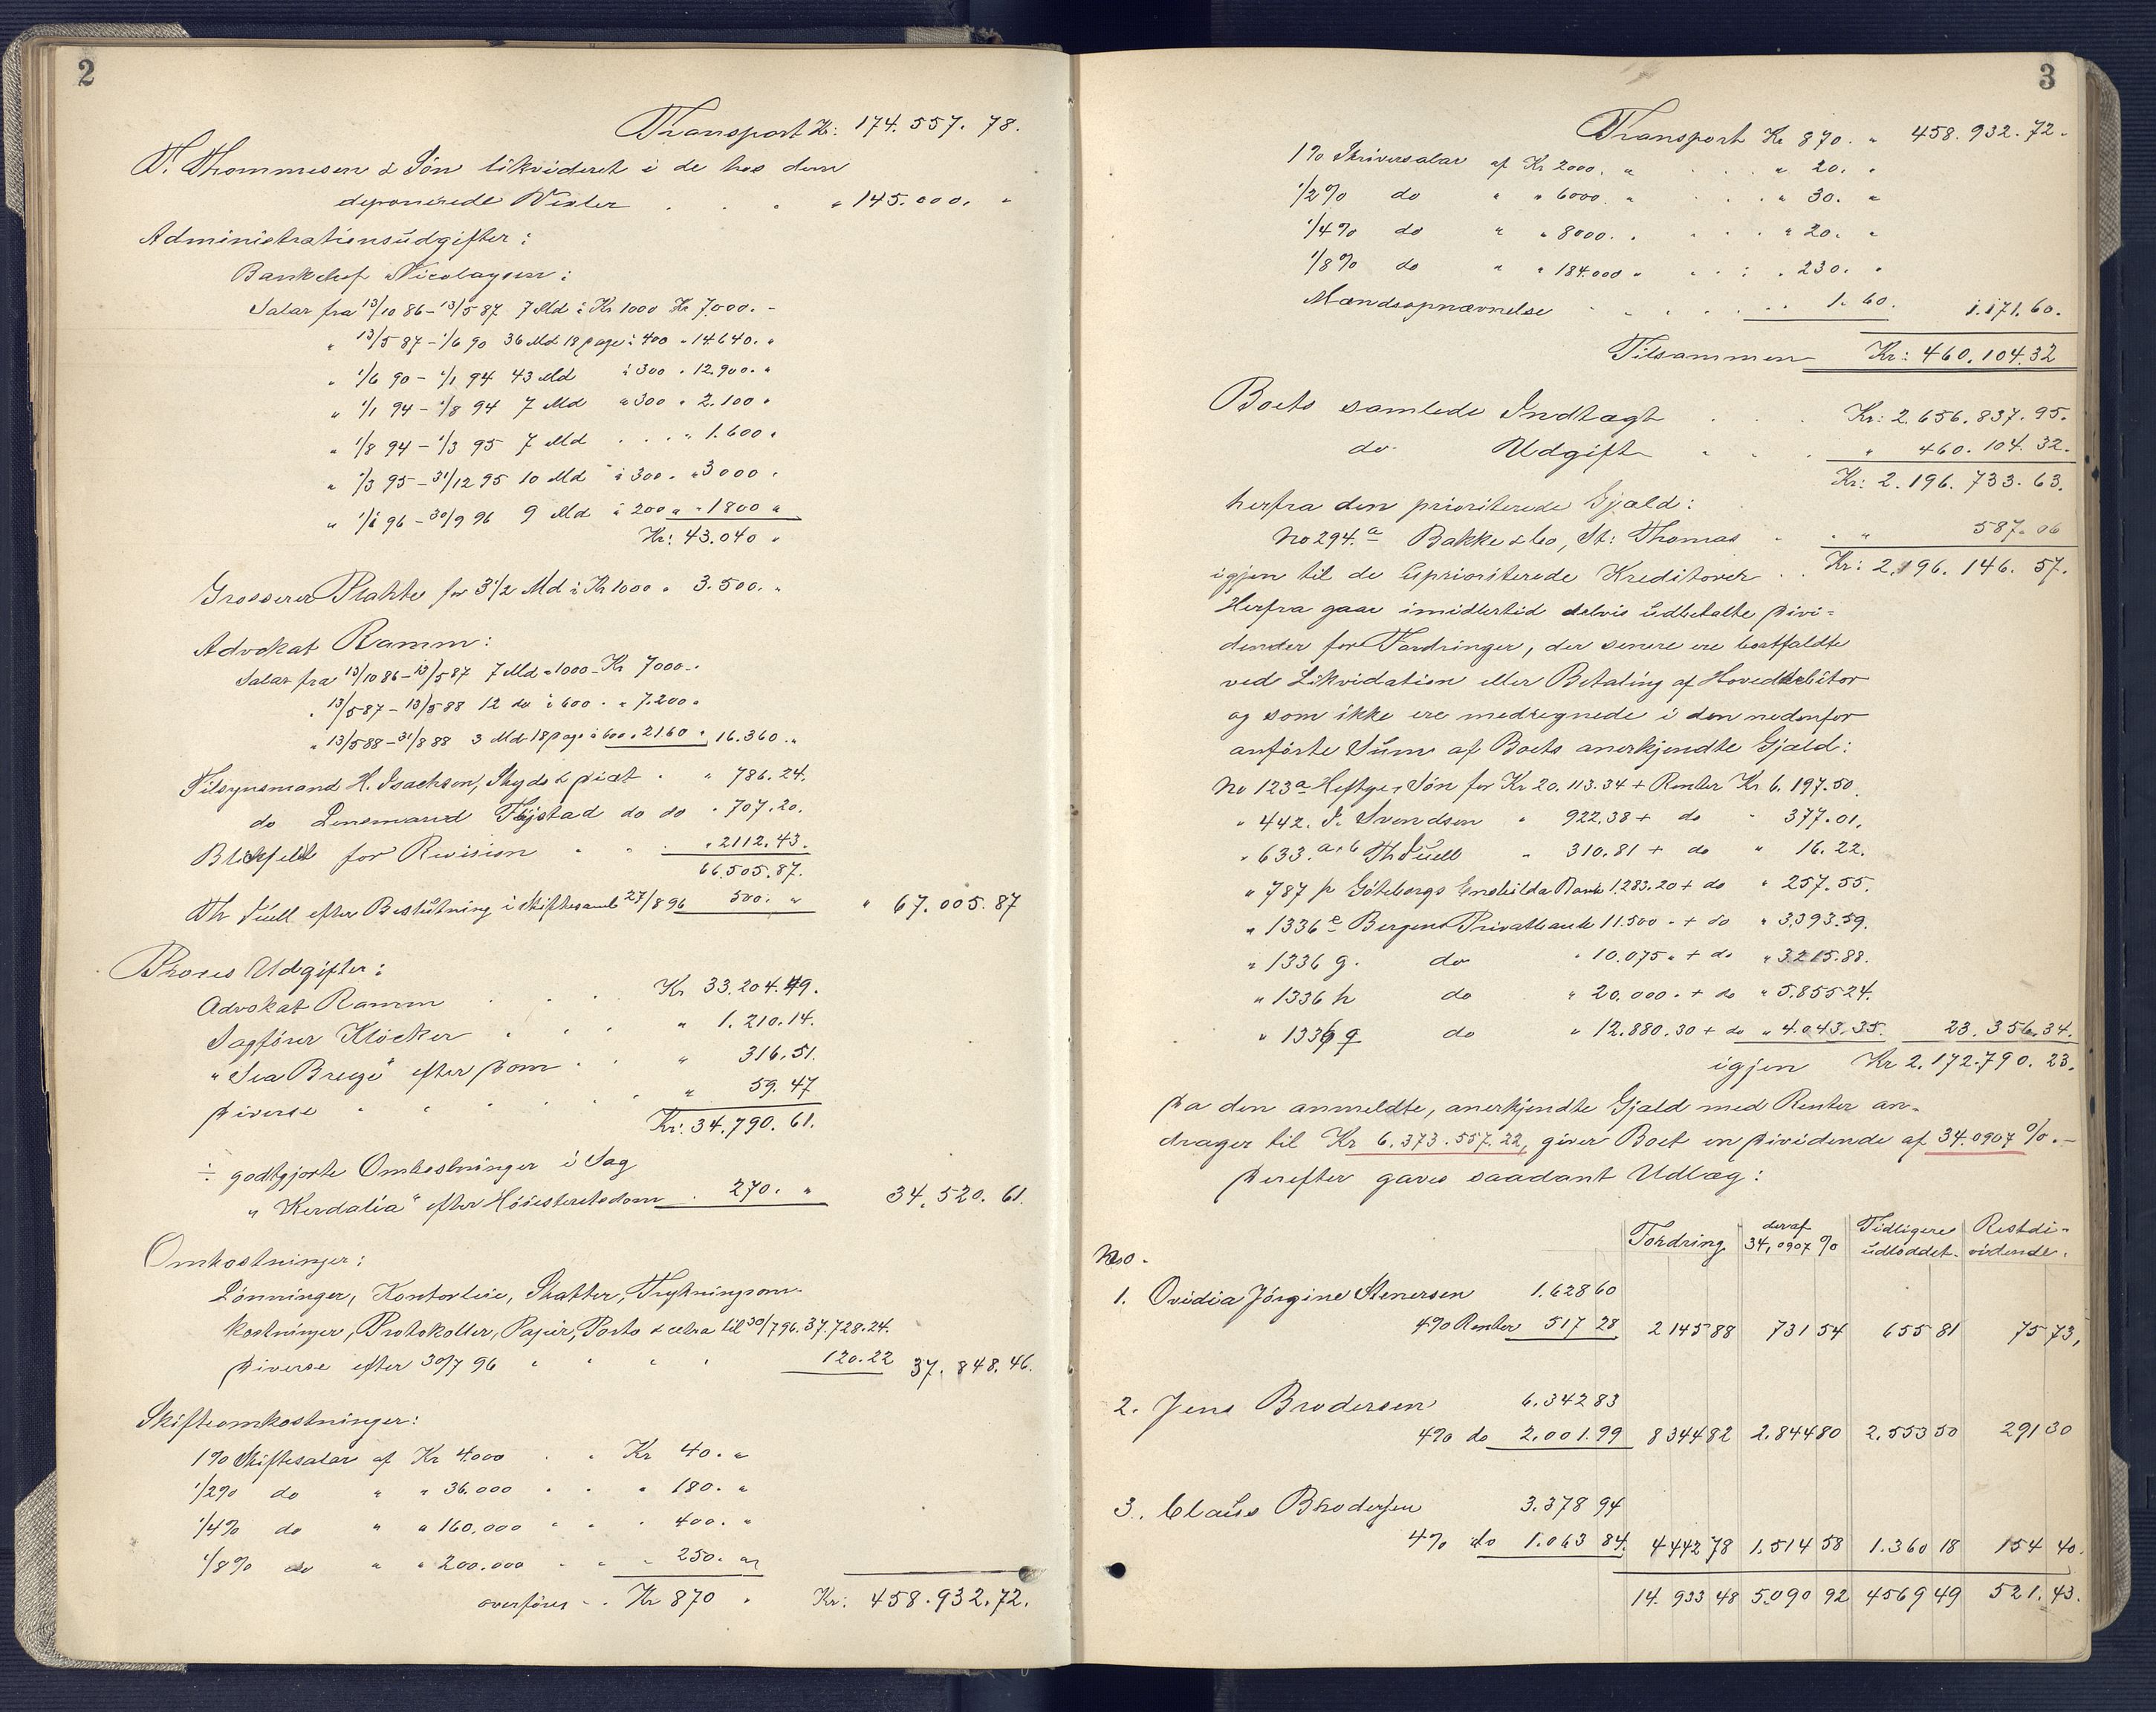 2
Transport Kr: 174.557.78.
T. Thommesen & Søn likvideret i de hos dem
deponerede Vexler . . . " 145.000. "
Administrationsudgifter:
Bankchef Nicolaysen:
Salar fra 13/10 86 – 13/5 87 7 Md à Kr 1000 Kr 7.000. -
" 13/5 87 – 1/6 90 36 Md 18 Dage à 400 " 14.640. "
" 1/6 90 – 1/1 94 43 Md à 300 " 12.900. "
" 1/1 94 – 1/8 94 7 Md à 300 " 2.100 "
" 1/8 94 – 1/3 95 7 Md . . . " 1.600 "
" 1/3 95 – 31/12 95 10 Md à 300 . " 3000 "
" 1/1 96 – 30/9 96 9 Md à 200 " " 1800 "
Kr: 43.040 "
Grosserer Plahte for 3 1/2 Md à Kr 1000 " 3.500. "
Advokat Ramm:
Salar fra 13/10 86 – 13/5 87 7 Md à 1000 – Kr 7000 - .
" 13/5 87 – 13/5 88 12 do à 600 . " 7.200 "
" 13/5 88 – 31/8 88 3 Md 18 Dage à 600 " 2160 " 16.360. "
Tilsynsmand H. Isachsen, Skyds & Diæt . " 786.24.
do Lensmand Tajstad do do " 707.20.
Blichfeldt for Revision " " . " 2112.43.
66.505.87.
Th Juell efter Beslutning i Skiftesaml 27/8 96 500. " " 67.005.87
Proces Udgifter:
Advokat Ramm . . . Kr 33.204.49.
Sagfører Klöcker . . . " 1.210.14.
"Sea Breeze" efter Dom . . " 316.51.
Diverse " " " " " 59.47
Kr: 34.790.61.
÷ godtgjorte Omkostninger i Sag
"Kerdalia" efter Høiesteretsdom . 270. " 34.520.61.
Omkostninger:
Lønninger, Kontorleie, Skatter, Trykningsom-
kostninger, Protokoller, Papir, Porto & cetra til 30/7 96. 37.728.24.
Diverse efter 30/7 96 " " " " 120.22 37.848.46.
Skifteomkostninger:
1 % Skiftesalar af Kr 4.000 . " Kr 40. "
1/2 % do " " 36.000 . . " 180. "
1/4 % do " " 160.000 " " " 400. "
1/8 % do " " 200.000 " " " 250. "
overføres - . Kr 870 " Kr: 458.932.72.
3
Transport Kr 870. " 458.932.72.
1 % Skriversalar af Kr 2000. " . . . " 20. "
1/2 % do " " 6000. " . . . " 30. "
1/4 % do " " 8000. . . . . " 20. "
1/8 % do " " 184.000 " . . . " 230. "
Mændsopnævnelse . . . . . . . 1.60. 1.171.60.
Tilsammen Kr: 460.104.32
Boets samlede Indtægt . . . Kr: 2.656.837.95.
do. Udgift . . . " 460.104.32.
Kr: 2.196.733.63.
herfra den prioriterede Gjæld:
No 294.a Bakke & Co, St: Thomas " . " 587.06
igjen til de uprioriterede Kreditorer . . Kr: 2.196.146.57.
Herfra gaar imidlertid delvis udbetalte Divi=
dender for Fordringer, der senere ere bortfaldte
ved Likvidation eller Betaling af Hoveddebitor
og som ikke ere medregnede i den nedenfor
anførte Sum af Boets anerkjendte Gjæld:
No 123a Heftye & Søn for Kr 20.113.34 + Renter Kr 6.197.50.
" 442. S. Svendsen " 922.38 + do " 377.01.
" 633.a+b Th Juell " 310.81 + do " 16.22.
" 787 p Göteborgs Enskilda Bank 1.283.20 + do " 257.55.
" 1336 e Bergens Privatbank 11.500 - + do " 3.393.59.
" 1336 g. do " 10.075 " + do " 3.215.88.
" 1336 h do " 20.000. + do " 5.855 24.
" 1336 q do " 12.880.30 + do " 4.043.35. 23.356.34.
igjen Kr 2.172.790.23.
Da den anmeldte, anerkjendte Gjæld med Renter an-
drager til Kr 6.373.557.22, giver Boet en Dividende af 34.0907 %. -
Derefter gives saadant Udlæg:
No. Fordring deraf 34,0907 % Tidligere udloddet. Restdi- vidende.
1. Ovidia Jørgine Stenersen 1.628 60
4 % Renter 517 28 2 145 88 731 54 655 81 75 73,
2. Jens Brodersen 6.342 83
4 % do 2.001.99 8 344 82 2.844 80 2.553 50 291 30
3. Claus Brodersen 3.378 94
4 % do 1.063 84. 4 442 78 1.514 58 1.360 18 154 40.
14.933 48 5.090 92 4569 49 521.43.